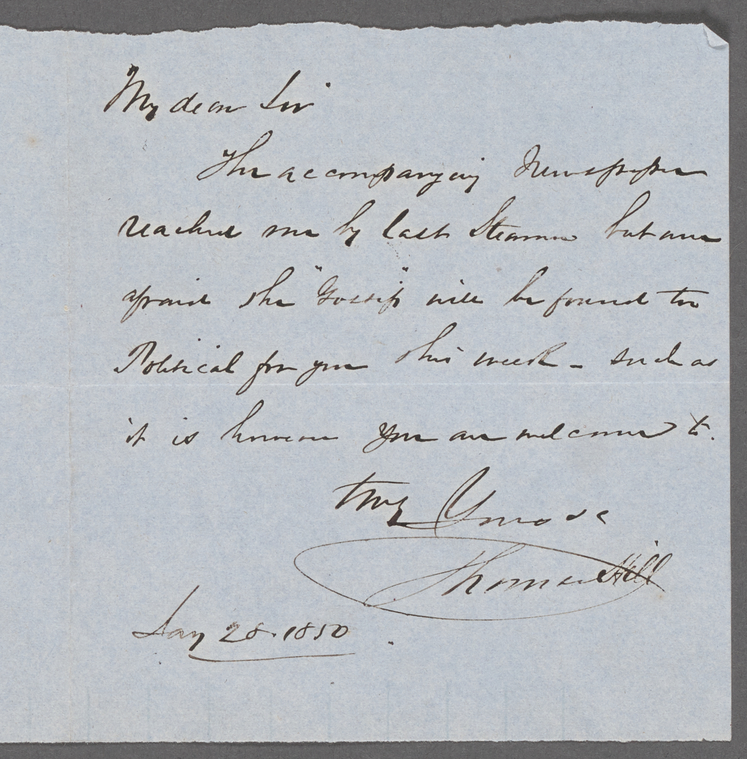 My dear Sir
The accompanying Newspaper
reached me by last Steamer but am
afraid the "Gossip" will be found too
Political for you this week - such as
it is however you are welcome to.
Truly Yours
Thomas Hill
Jany 28. 1850.